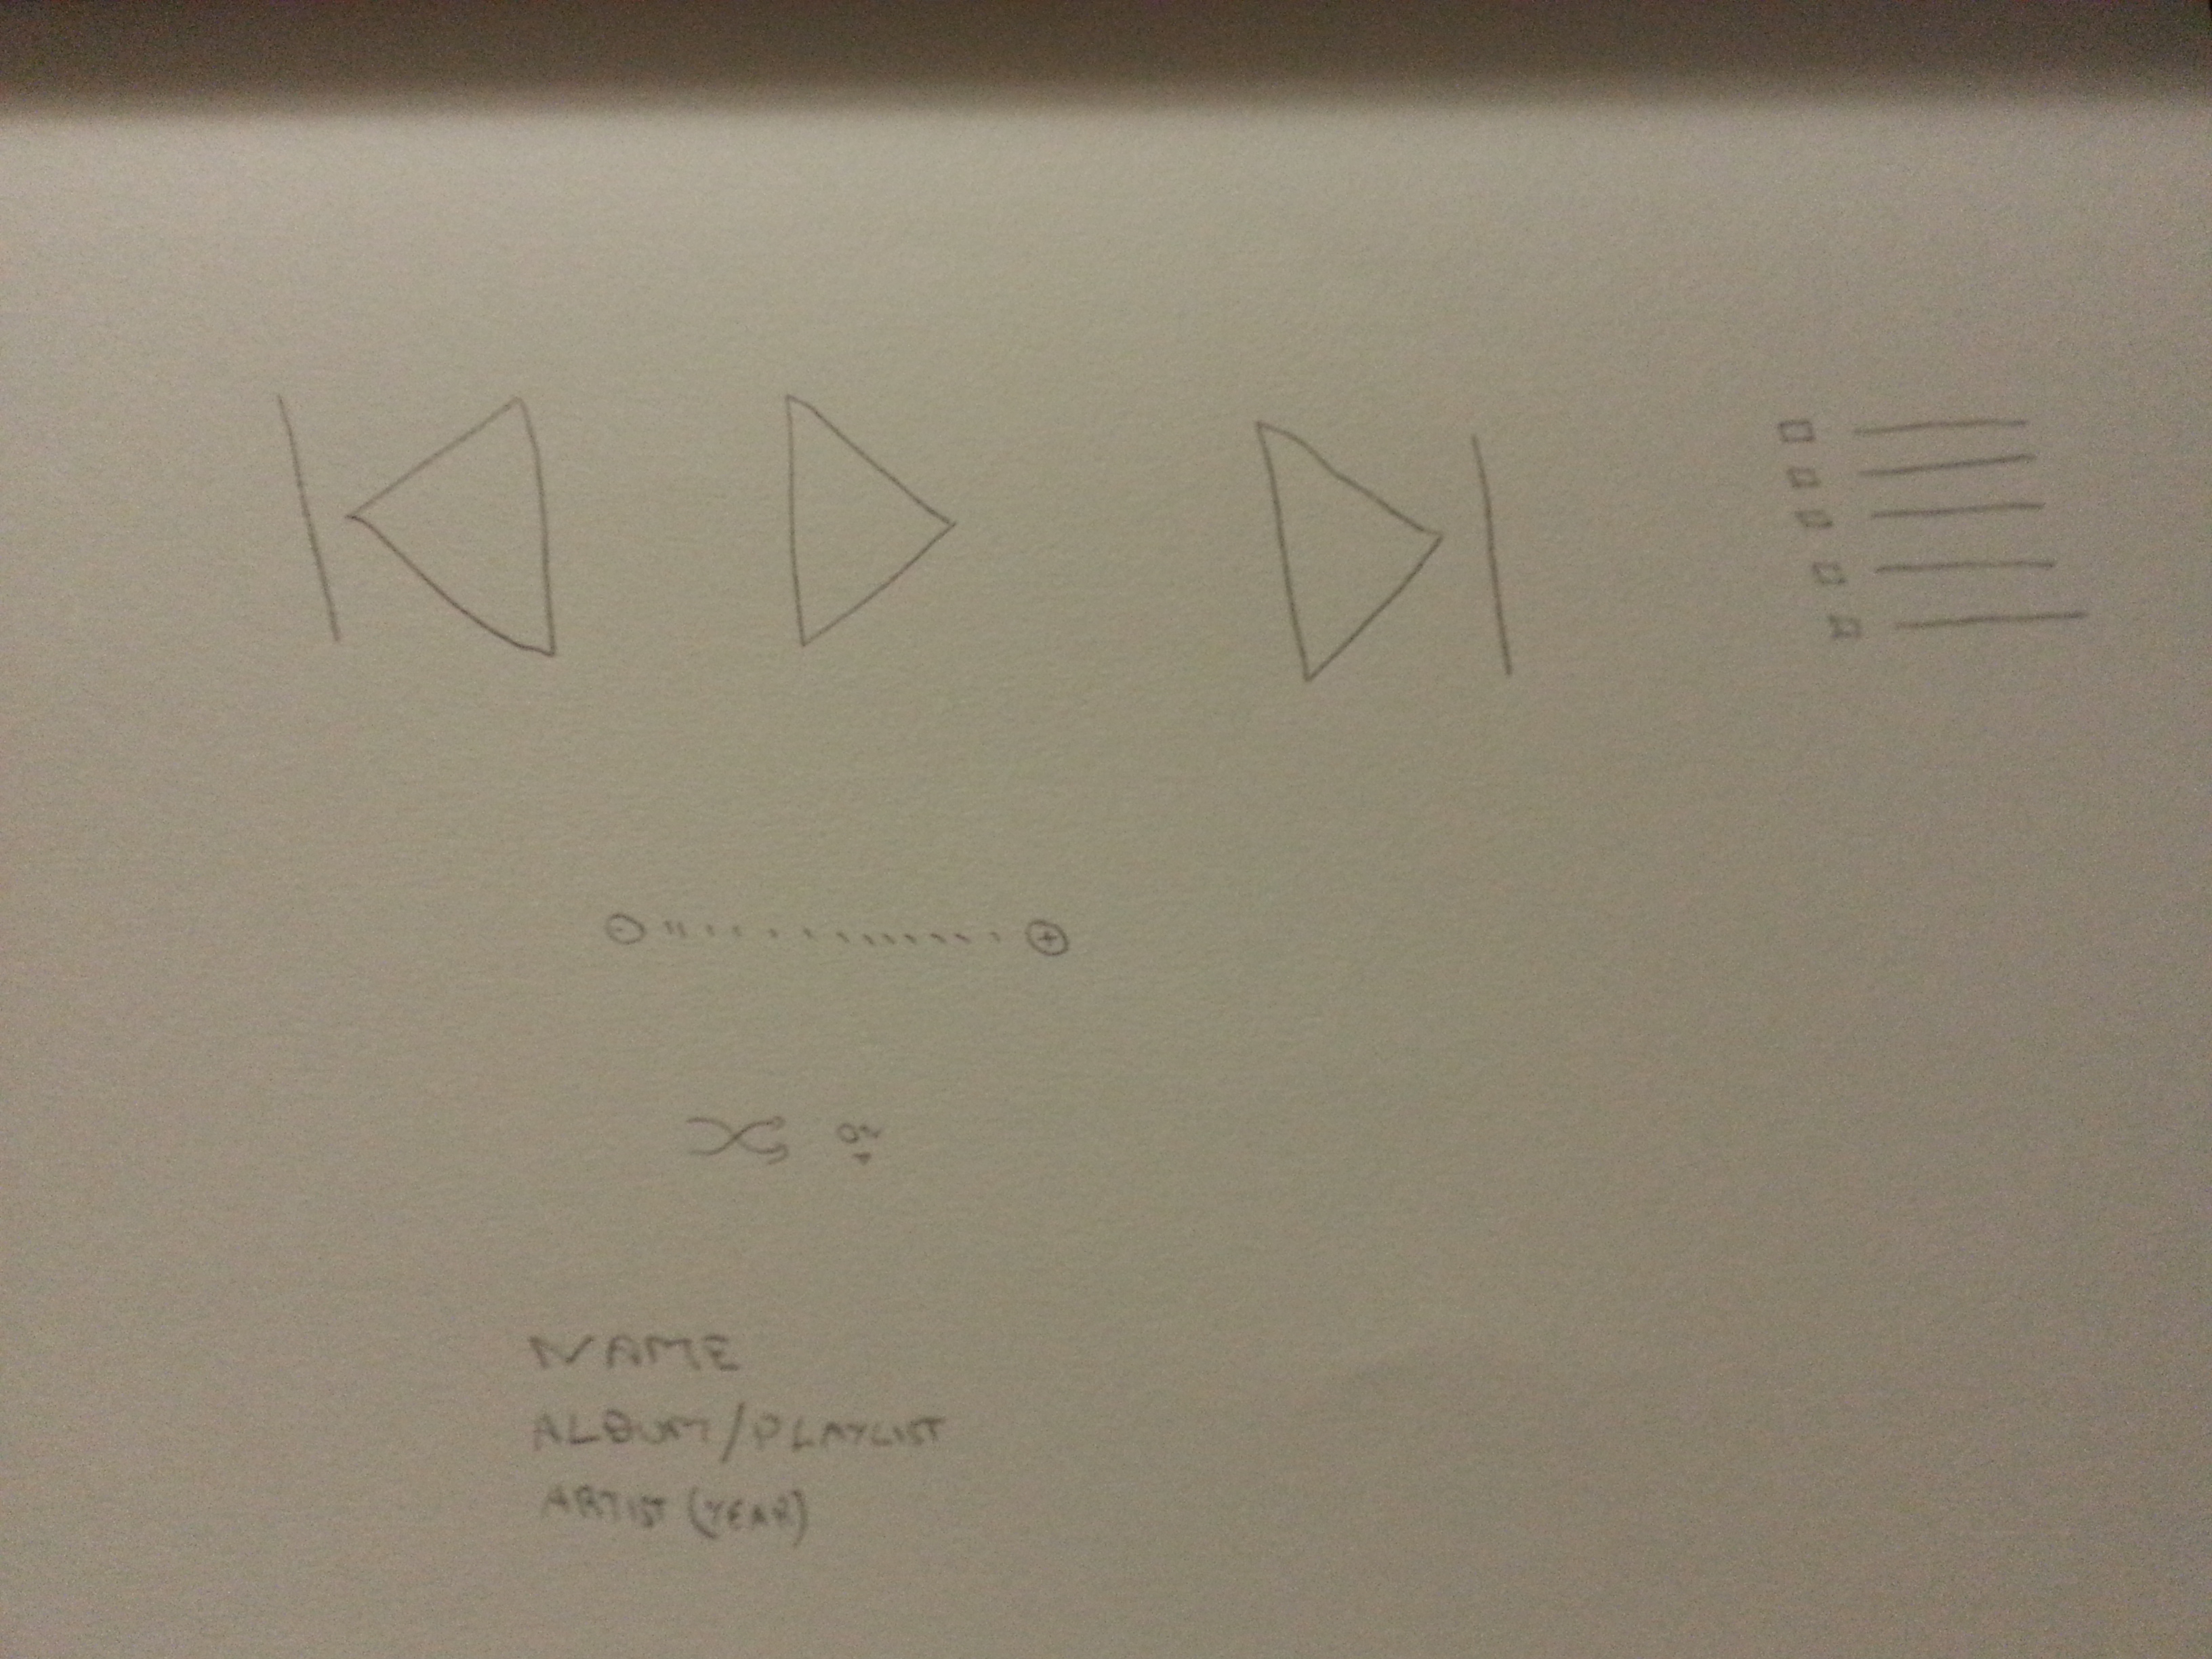 - +
ON
NAME
ALBUM/PLAYLIST
ARTIST (YEAR)